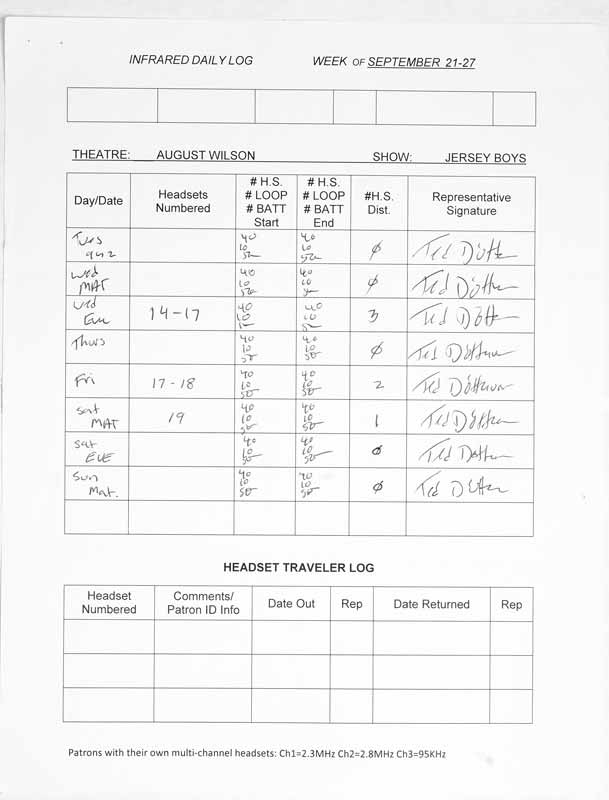 INFRARED DAILY LOG WEEK OF SEPTEMBER 21-27
THEATRE: AUGUST WILSON SHOW: JERSEY BOYS
Day/Date Headsets Numbered # H.S. # LOOP # BATT Start # H.S. # LOOP # BATT End #H.S. Dist. Representative Signature
Tues 40 10 50 40 10 50 Ø Ted
Wed MAT 40 10 50 40 10 Ø Ted
Wed Eve 14-17 40 10 40 10 3 Ted
Thurs 40 10 50 40 10 50 Ø Ted
Fri 17-18 40 10 50 40 10 50 2 Ted
Sat MAT 19 40 10 50 40 10 50 1 Ted
Sat EVE 40 10 50 40 10 50 Ø Ted
Sun Mat. 40 10 50 40 10 50 Ø Ted
HEADSET TRAVELER LOG
Headset Numbered Comments/ Patron ID Info Date Out Rep Date Returned Rep
Patrons with their own multi-channel headsets: Ch1=2.3MHz Ch2=2.8MHz Ch3=95KHz